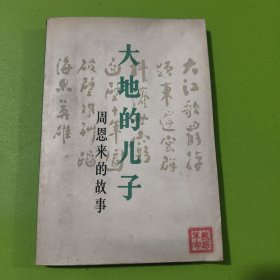 大地的儿子
周恩来的故事
大江歌罷掉
頭東邃密群
科濟世窮
面壁十年圖
破壁難酬蹈
海亦英雄